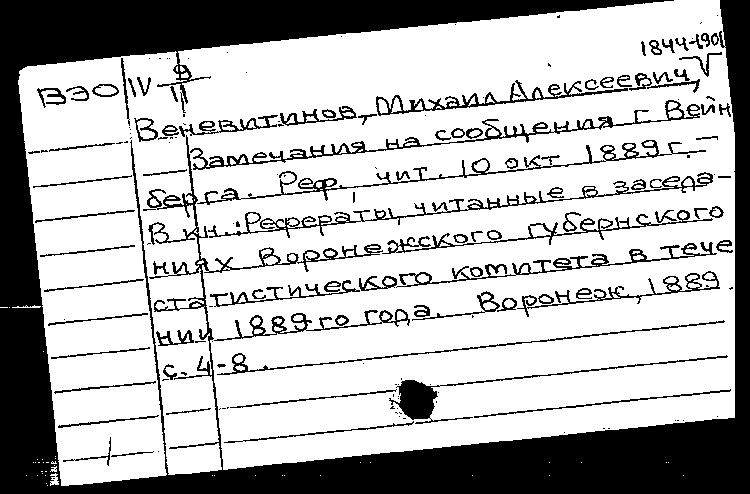 1844-1901
ВЭО IV 9/11
Веневитинов, Михаил Алексеевич,
Замечания на сообщения г. Вейн
берга. Реф., чит. 10 окт. 1889 г. –
В кн.: Рефераты, читанные в заседа-
ниях Воронежского губернского
статистического комитета в тече
нии 1889-го года. Воронеж, 1889.
с. 4-8.